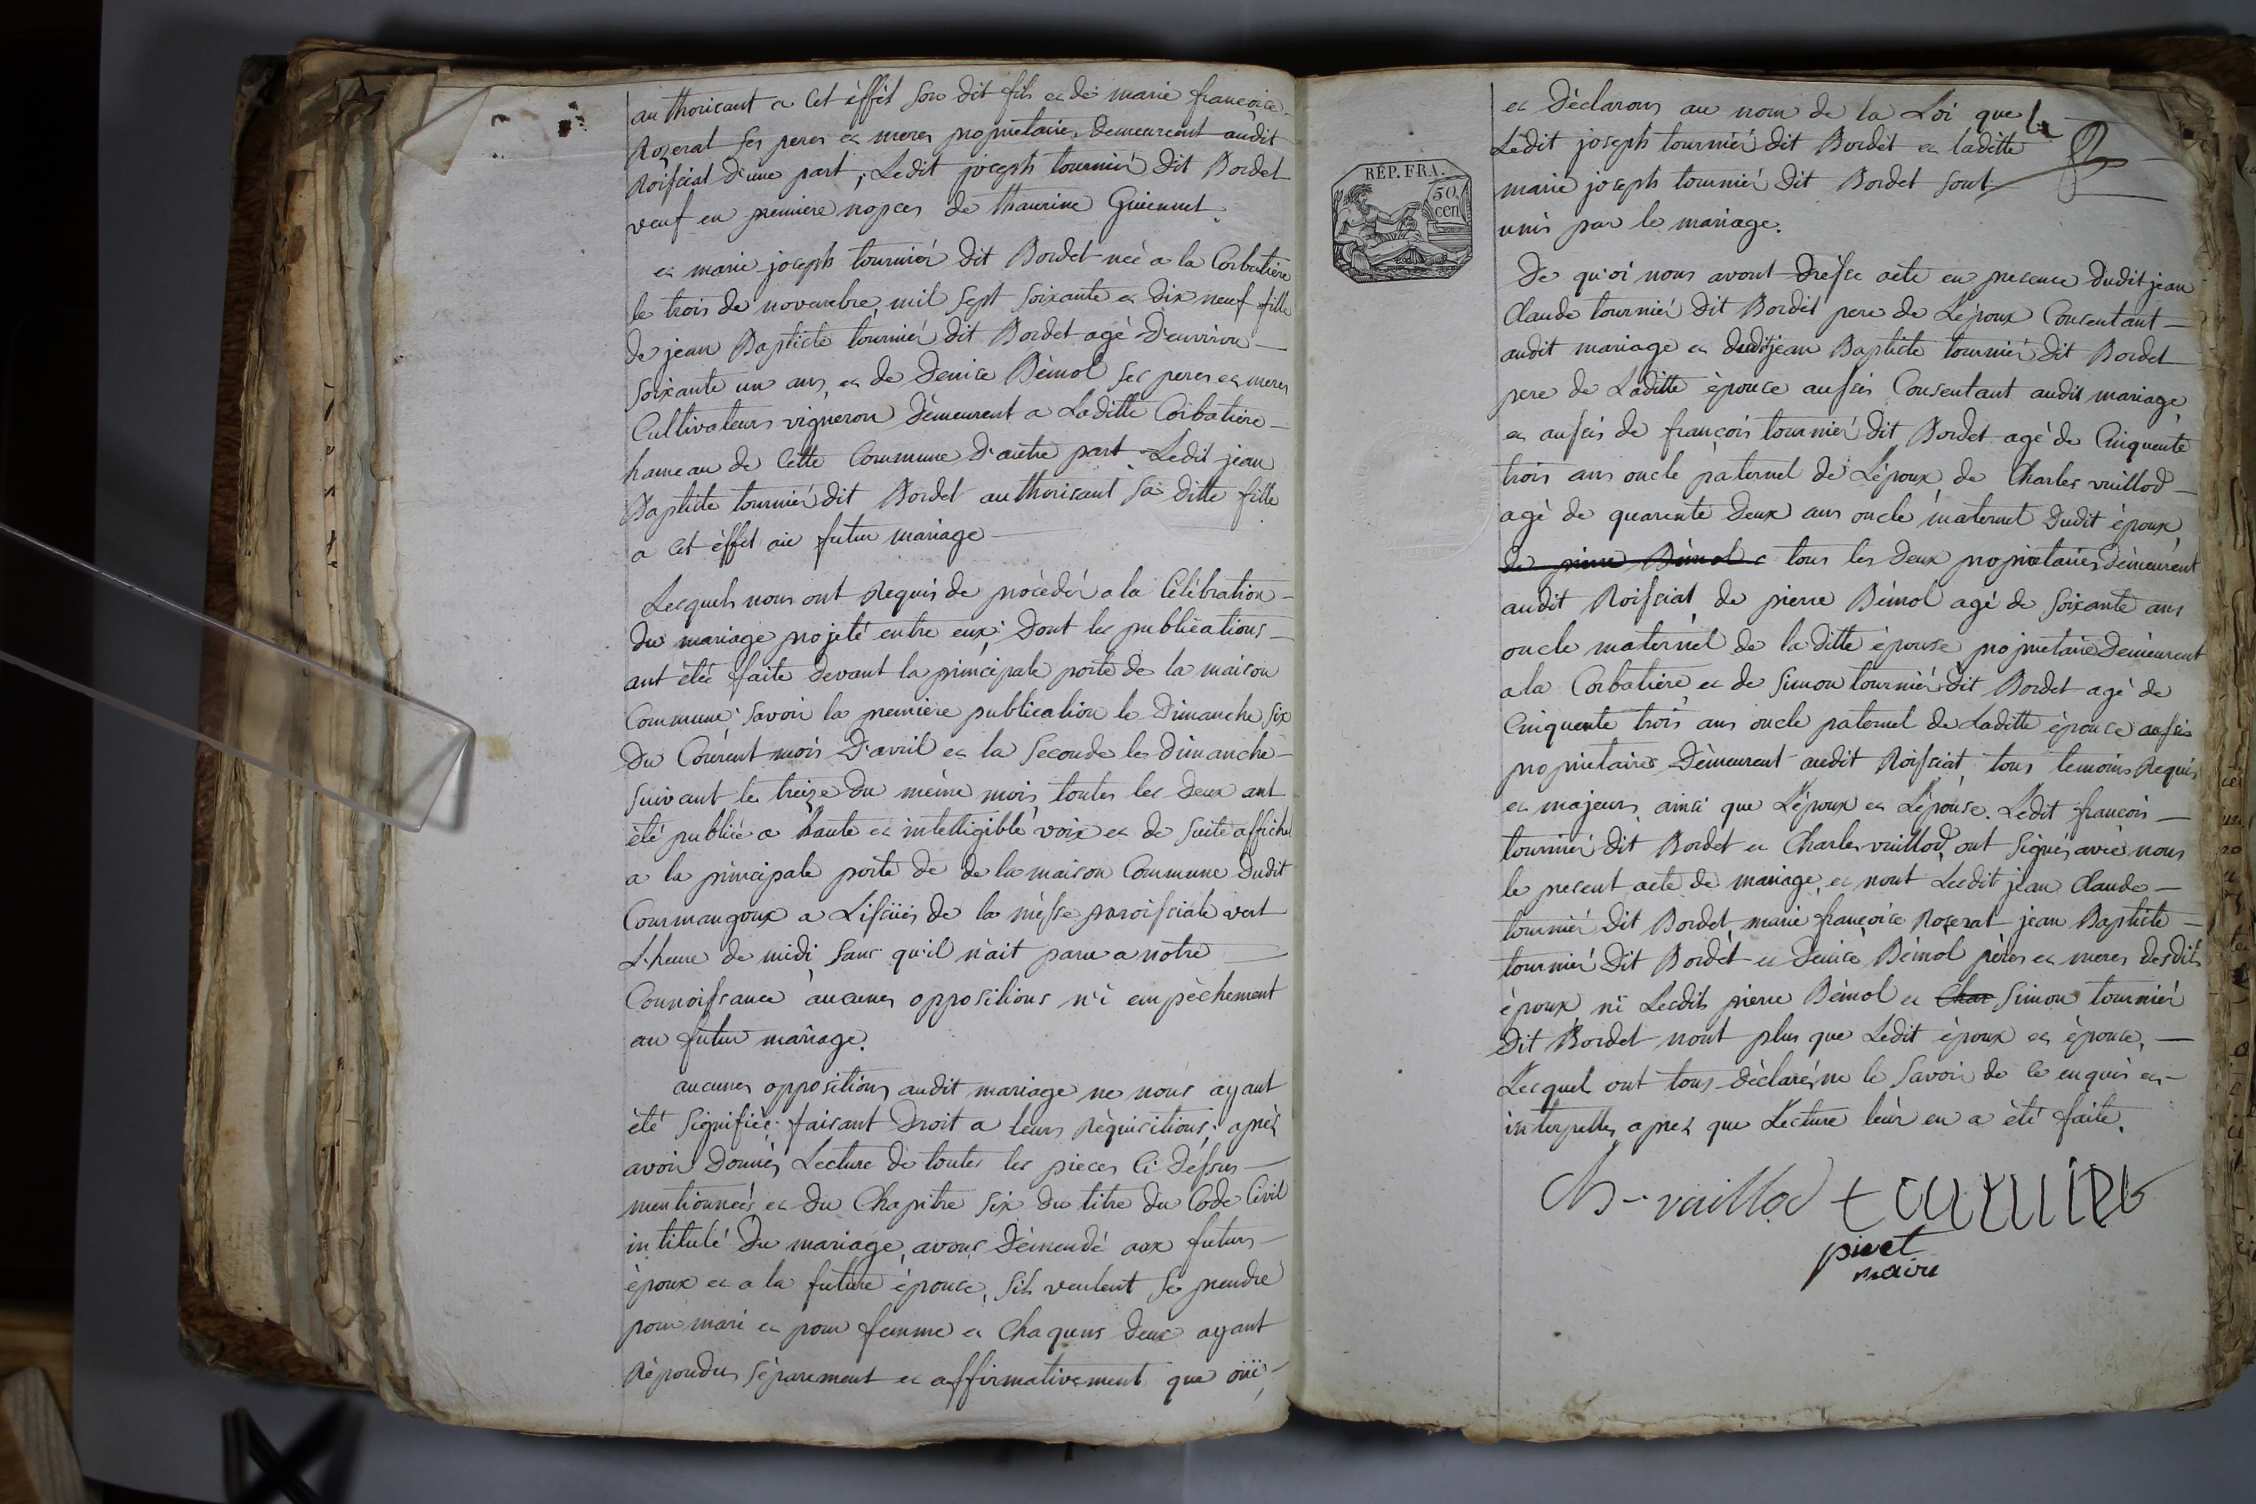 authorisant a Cet èffèt son dit fils et de marie francoice
Rozerat ses peres et meres proprietaires demeurant audit
Roissiat d'une part; Ledit joseph tournier dit Bordet
veuf en premiere nopces de thaurine Guiennet.
et marie joseph tournier dit Bordet neé a la Corbatiere
le trois de novembre mil sept soixante et dix neuf fille
de jean Baptiste tournier dit Bordet agé d'environ
soixante un ans, et de Denice Bémol ses peres et meres
Cultivateurs vigneron dèmeurent a Laditte Corbatiere
hameau de Cette Commune d'autre part Ledit jean
Baptiste tournier dit Bordet authorisant sa ditte fille
a cet èffet au futur mariage
Lesquels nous ont Requis de procèder a la Célébration
du mariage projeté entre eux: Dont les publications
ont étée faite devant la principale porte de la maison
Commune; savoir la premiere publication le Dimanche six
du Courent mois D'avril et la Seconde le dimanche
suivant le treize du mème mois, toutes les deux ont
été publiée a haute et intelligible voix et de suite affiché
a la principale porte de de la maison Commune dudit
Courmangoux a Lissüe de la mèsse paroissiale vert
L'heure de midi sans qu'il n'ait parue a notre
Connoissance aucunes oppositions n'i empèchement
au futur mariage.
aucunes oppositions audit mariage ne nous ayant
été signifiée: faisant Droit a leurs Réquisitions; après
avoir donnés Lecture de toutes les pieces Ci dessus
mentionneés et du Chapitre six du titre du Code Civil
intitulé Du mariage, avons dèmendé aux futurs
époux et a la future épouce, sils veulent se prendre
pour mari et pour femme et Chaquns deux ayant
Répondus sèparement et affirmativement que oüi,
RÉP. FRA.
50
cen
et Déclarons au nom de la Loi que
Ledit joseph tournier dit Bordet et laditte
marie joseph tournier dit Bordet sont
unis par le mariage.
De qu'oi nous avont dressé acte en presence dudit jean
Claude tournier dit Bordet pere de Lépoux Consentant
audit mariage et dudit jean Baptiste tournier dit Bordet
pere de Laditte épouce aussis Consentant audit mariage
et aussis de françois tournier dit Bordet agé de Cinquente
trois ans oncle paternel de Lépoux, de Charles vuillod
agé de quarente deux ans oncle maternel dudit époux,
de pierre Bémol e tous les deux proprietaires dèmeurent
audit Roissiat, de pierre Bémol agé de soixante ans
oncle maternel de la ditte épouse proprietaire Dèmeurent
a la Corbatiere et de simon tournier dit Bordet agé de
Cinquente trois ans oncle paternel de Laditte épouce aussis
proprietaires Dèmeurent audit Roissiat, tous temoins Requis
et majeurs, ainsi que L'époux et L'épouse. Ledit francois
tournier dit Bordet et Charles vuillod, ont signés avec nous
le present acte de mariage, et nont Lesdit jean Claude
tournier dit Bordet, marie françoice Rozerat jean Baptiste
tournier dit Bordet et Denice Bémol pères et meres desdits
époux ni Lesdits pierre Bémol et Char simon tournier
dit Bordet nont plus que Ledit époux et épouce,
Lesquel ont tous déclarés ne le savoir de ce enquis et
interpelles apres que Lecture leur en a été faite.
Ch - vuillod tournier
pivet
maire